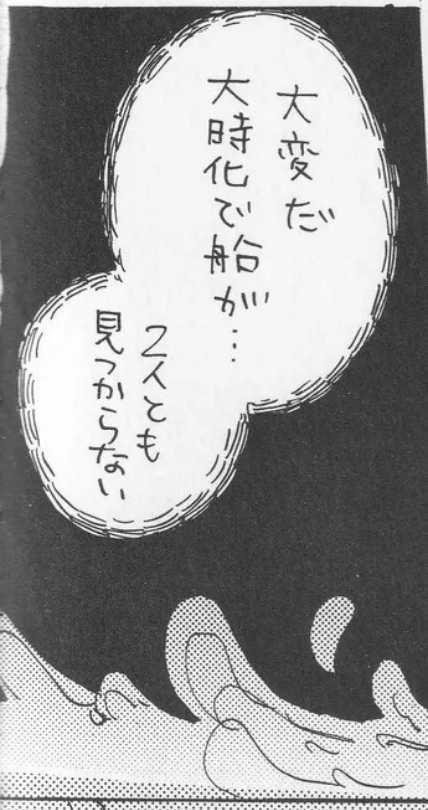 大変だ
大時化で船が…
2人とも
見つからない